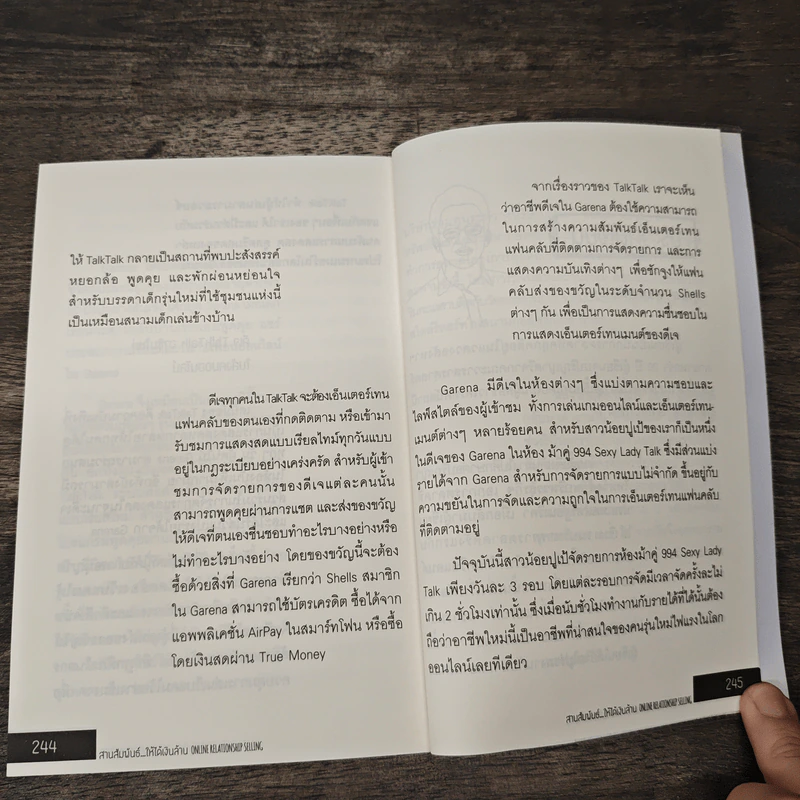 ให้ TalkTalk กลายเป็นสถานที่พบปะสังสรรค์
หยอกล้อ พูดคุย และพักผ่อนหย่อนใจ
สำหรับบรรดาเด็กรุ่นใหม่ที่ใช้ชุมชนแห่งนี้
เป็นเหมือนสนามเด็กเล่นข้างบ้าน
ดีเจทุกคนใน TalkTalk จะต้องเอ็นเตอร์เทน
แฟนคลับของตนเองที่กดติดตาม หรือเข้ามา
รับชมการแสดงสดแบบเรียลไทม์ทุกวันแบบ
อยู่ในกฎระเบียบอย่างเคร่งครัด สำหรับผู้เข้า
ชมการจัดรายการของดีเจแต่ละคนนั้น
สามารถพูดคุยผ่านการแชต และส่งของขวัญ
ให้ดีเจที่ตนเองชื่นชอบทำอะไรบางอย่างหรือ
ไม่ทำอะไรบางอย่าง โดยของขวัญนี้จะต้อง
ซื้อด้วยสิ่งที่ Garena เรียกว่า Shells สมาชิก
ใน Garena สามารถใช้บัตรเครดิต ซื้อได้จาก
แอพพลิเคชั่น AirPay ในสมาร์ทโฟน หรือซื้อ
โดยเงินสดผ่าน True Money
244
สานสัมพันธ์...ให้ได้เงินล้าน ONLINE RELATIONSHIP SELLING
จากเรื่องราวของ TalkTalk เราจะเห็น
ว่าอาชีพดีเจใน Garena ต้องใช้ความสามารถ
ในการสร้างความสัมพันธ์เอ็นเตอร์เทน
แฟนคลับที่ติดตามการจัดรายการ และการ
แสดงความบันเทิงต่างๆ เพื่อชักจูงให้แฟน
คลับส่งของขวัญในระดับจำนวน Shells
ต่างๆ กัน เพื่อเป็นการแสดงความชื่นชอบใน
การแสดงเอ็นเตอร์เทนเมนต์ของดีเจ
Garena มีดีเจในห้องต่างๆ ซึ่งแบ่งตามความชอบและ
ไลฟ์สไตล์ของผู้เข้าชม ทั้งการเล่นเกมออนไลน์และเอ็นเตอร์เทน-
เมนต์ต่างๆ หลายร้อยคน สำหรับสาวน้อยปูเป้ของเราก็เป็นหนึ่ง
ในดีเจของ Garena ในห้อง ม้าคู่ 994 Sexy Lady Talk ซึ่งมีส่วนแบ่ง
รายได้จาก Garena สำหรับการจัดรายการแบบไม่จำกัด ขึ้นอยู่กับ
ความขยันในการจัดและความถูกใจในการเอ็นเตอร์เทนแฟนคลับ
ที่ติดตามอยู่
ปัจจุบันนี้สาวน้อยปูเป้จัดรายการห้องม้าคู่ 994 Sexy Lady
Talk เพียงวันละ 3 รอบ โดยแต่ละรอบการจัดมีเวลาจัดครั้งละไม่
เกิน 2 ชั่วโมงเท่านั้น ซึ่งเมื่อนับชั่วโมงทำงานกับรายได้ที่ได้นั้นต้อง
ถือว่าอาชีพใหม่นี้เป็นอาชีพที่น่าสนใจของคนรุ่นใหม่ไฟแรงในโลก
ออนไลน์เลยทีเดียว
245
สานสัมพันธ์...ให้ได้เงินล้าน ONLINE RELATIONSHIP SELLING